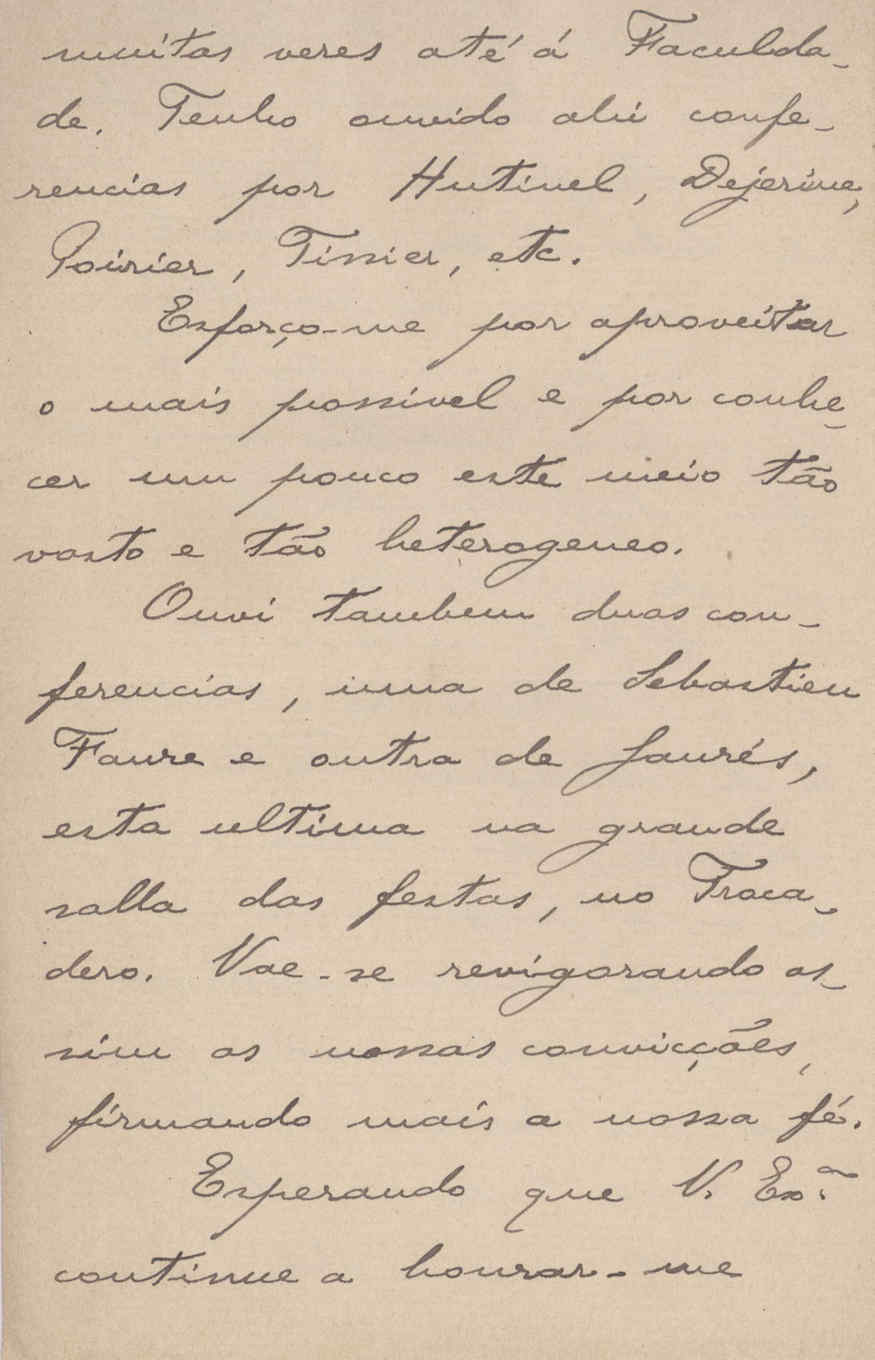 muitas vezes até á Faculda-
de. Tenho ouvido ahi confe-
rencias por Hutinel, Dejerine,
Poirier, Tissier, etc.
Esforço-me por aproveitar
o mais possivel e por conhe-
cer um pouco este meio tão
vasto e tão heterogeneo.
Ouvi tambem duas con-
ferencias, uma de Sebastien
Faure e outra de Jaurés,
esta ultima na grande
salla das festas, no Troca-
dero. Vae-se revigorando as-
sim as nossas convicções,
firmando mais a nossa fé.
Esperando que V. Exª
continue a honrar-me